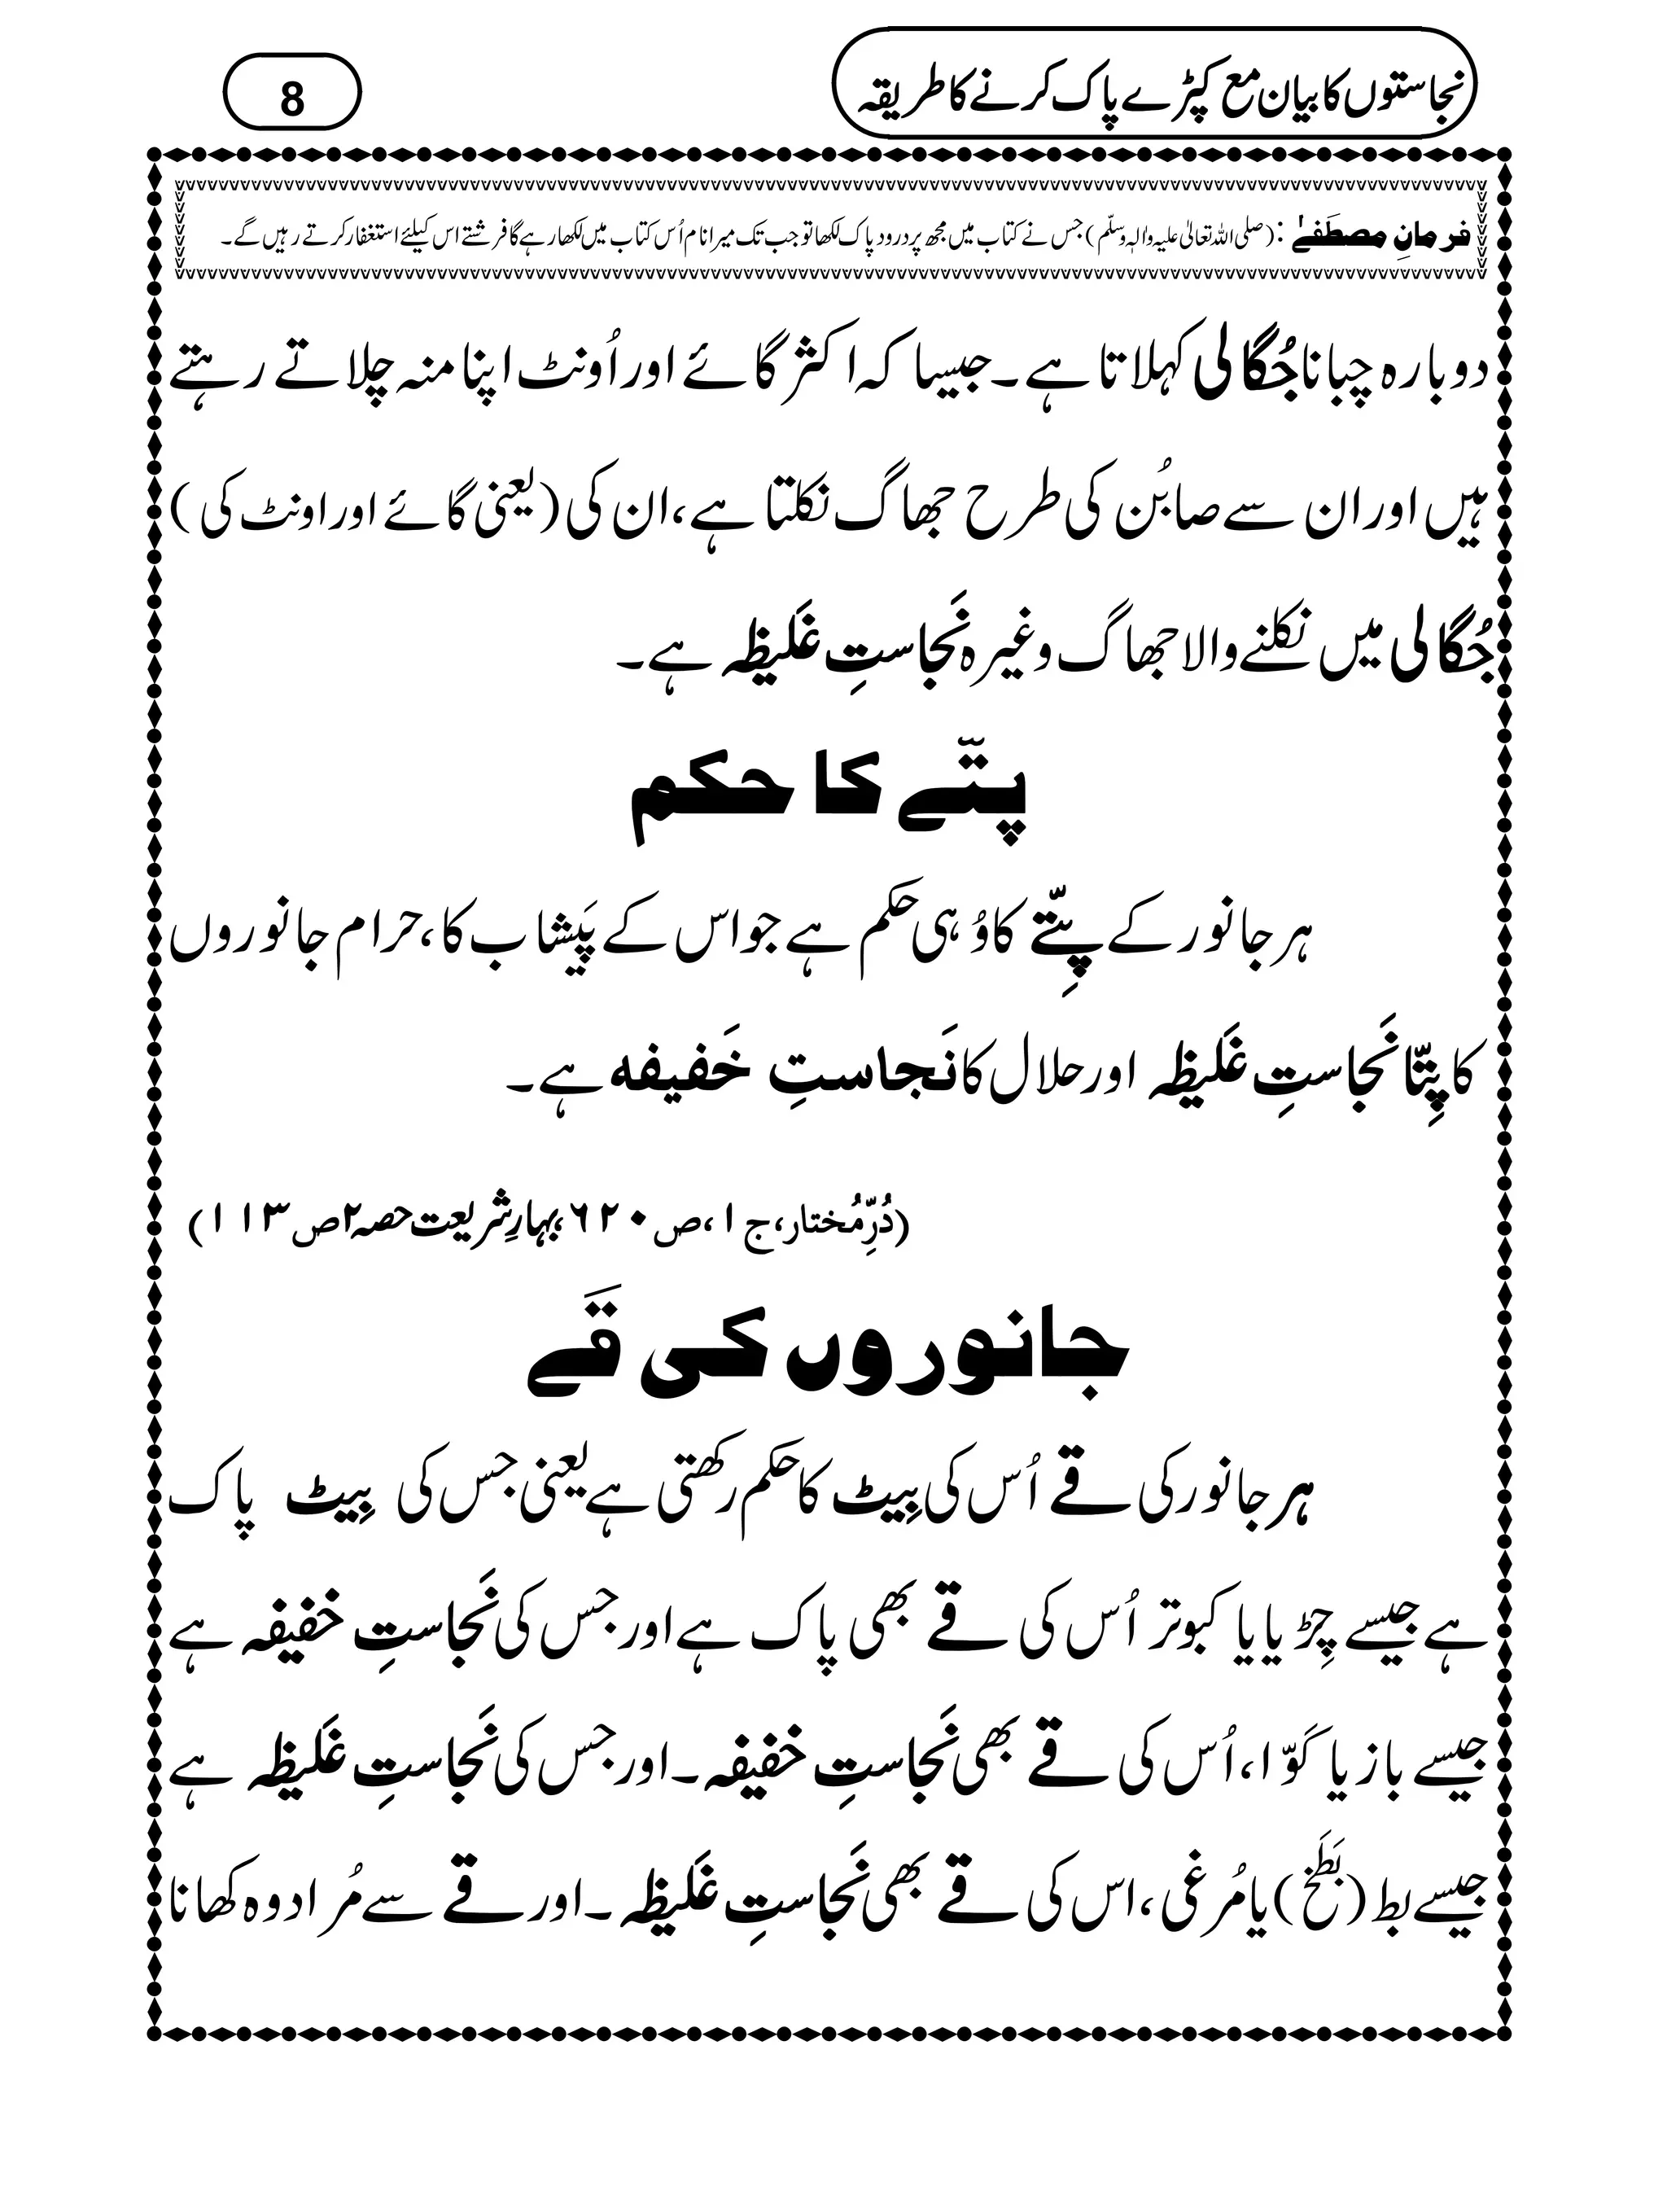 نجاستوں کا بیان مع کپڑے پاک کرنے کا طریقہ
8
فرمانِ مصطَفےٰ : (صلی اللہ تعالیٰ علیہ والہٖ وسلّم) جس نے کتاب میں مجھ پر درود پاک لکھا تو جب تک میرا نام اُس کتاب میں لکھا رہے گا فرشتے اس کیلئے استغفار کرتے رہیں گے۔
دوبارہ چبانا جُگالی کہلاتا ہے۔جیسا کہ اکثر گائے اور اُونٹ اپنا منہ چلاتے رہتے
ہیں اور ان سے صابُن کی طرح جھاگ نکلتا ہے، ان کی (یعنی گائے اور اونٹ کی)
جُگالی میں نکلنے والا جھاگ وغیرہ نَجاستِ غَلیظہ ہے۔
پتّے کا حکم
ہر جانور کے پِتّے کا وُہی حُکم ہے جو اس کے پَیشاب کا، حرام جانوروں
کا پِتّا نَجاستِ غَلیظہ اور حلال کا نَجاستِ خَفیفہ ہے۔
(دُرِّمُختار، ج۱، ص ۶۲۰، بہارِ شریعت حصہ ۲ ص ۱۱۳)
جانوروں کی قَے
ہر جانور کی قے اُس کی بِیٹ کا حکم رکھتی ہے یعنی جس کی بِیٹ پاک
ہے جیسے چِڑیا یا کبوتر اُس کی قے بھی پاک ہے اور جس کی نَجاستِ خفیفہ ہے
جیسے باز یا کَوّا، اُس کی قے بھی نَجاستِ خفیفہ۔ اور جس کی نَجاستِ غَلیظہ ہے
جیسے بط (بَطَخ) یا مُرغی، اس کی قے بھی نَجاستِ غَلیظہ۔ اور قے سے مُراد وہ کھانا